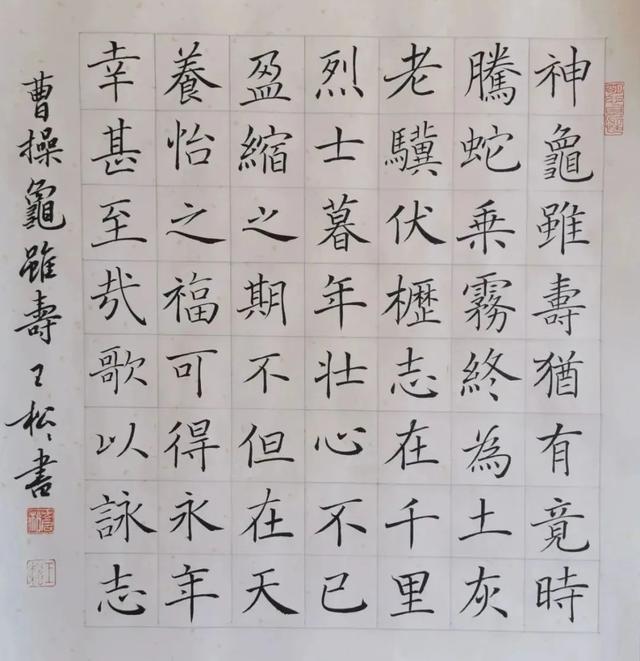 神龜雖壽猶有竟時
騰蛇乗霧終為土灰
老驥伏櫪志在千里
烈士暮年壯心不已
盈縮之期不但在天
養怡之福可得永年
幸甚至哉歌以詠志
曹操龜雖壽王松書